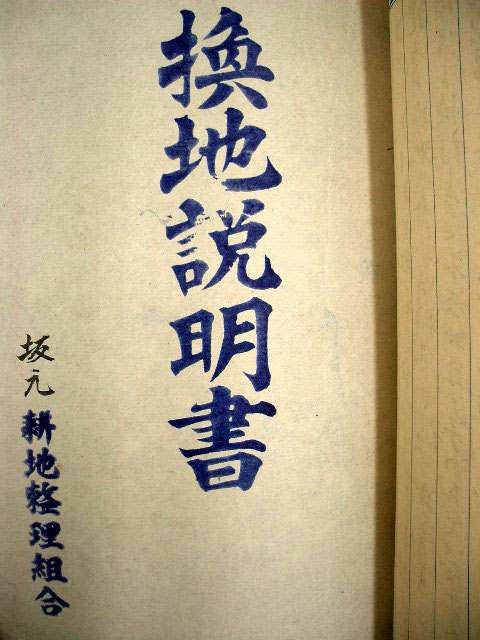 換地説明書
坂元耕地整理組合